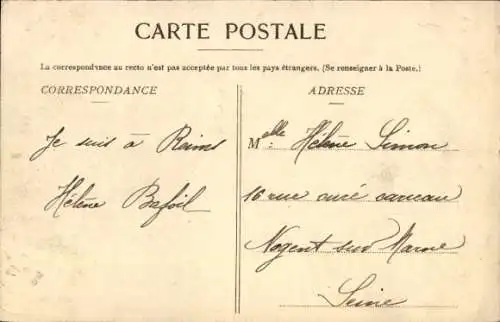 CARTE POSTALE
La correspondance au recto n'est pas acceptée par tous les pays étrangers. (Se renseigner à la Poste.)
CORRESPONDANCE
ADRESSE
Je suis à Reims
Hélène Bafoil
Melle: Hélène Simon
16 rue curé carreau
Nogent sur Marne
Seine